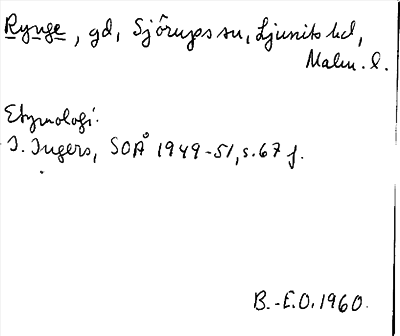 Rynge, gd, Sjörups sn, Ljunits hd,
Malm. l.
Etymologi.
I. Ingers, SOÅ 1949-51, s. 67 f.
B.-E.O. 1960.